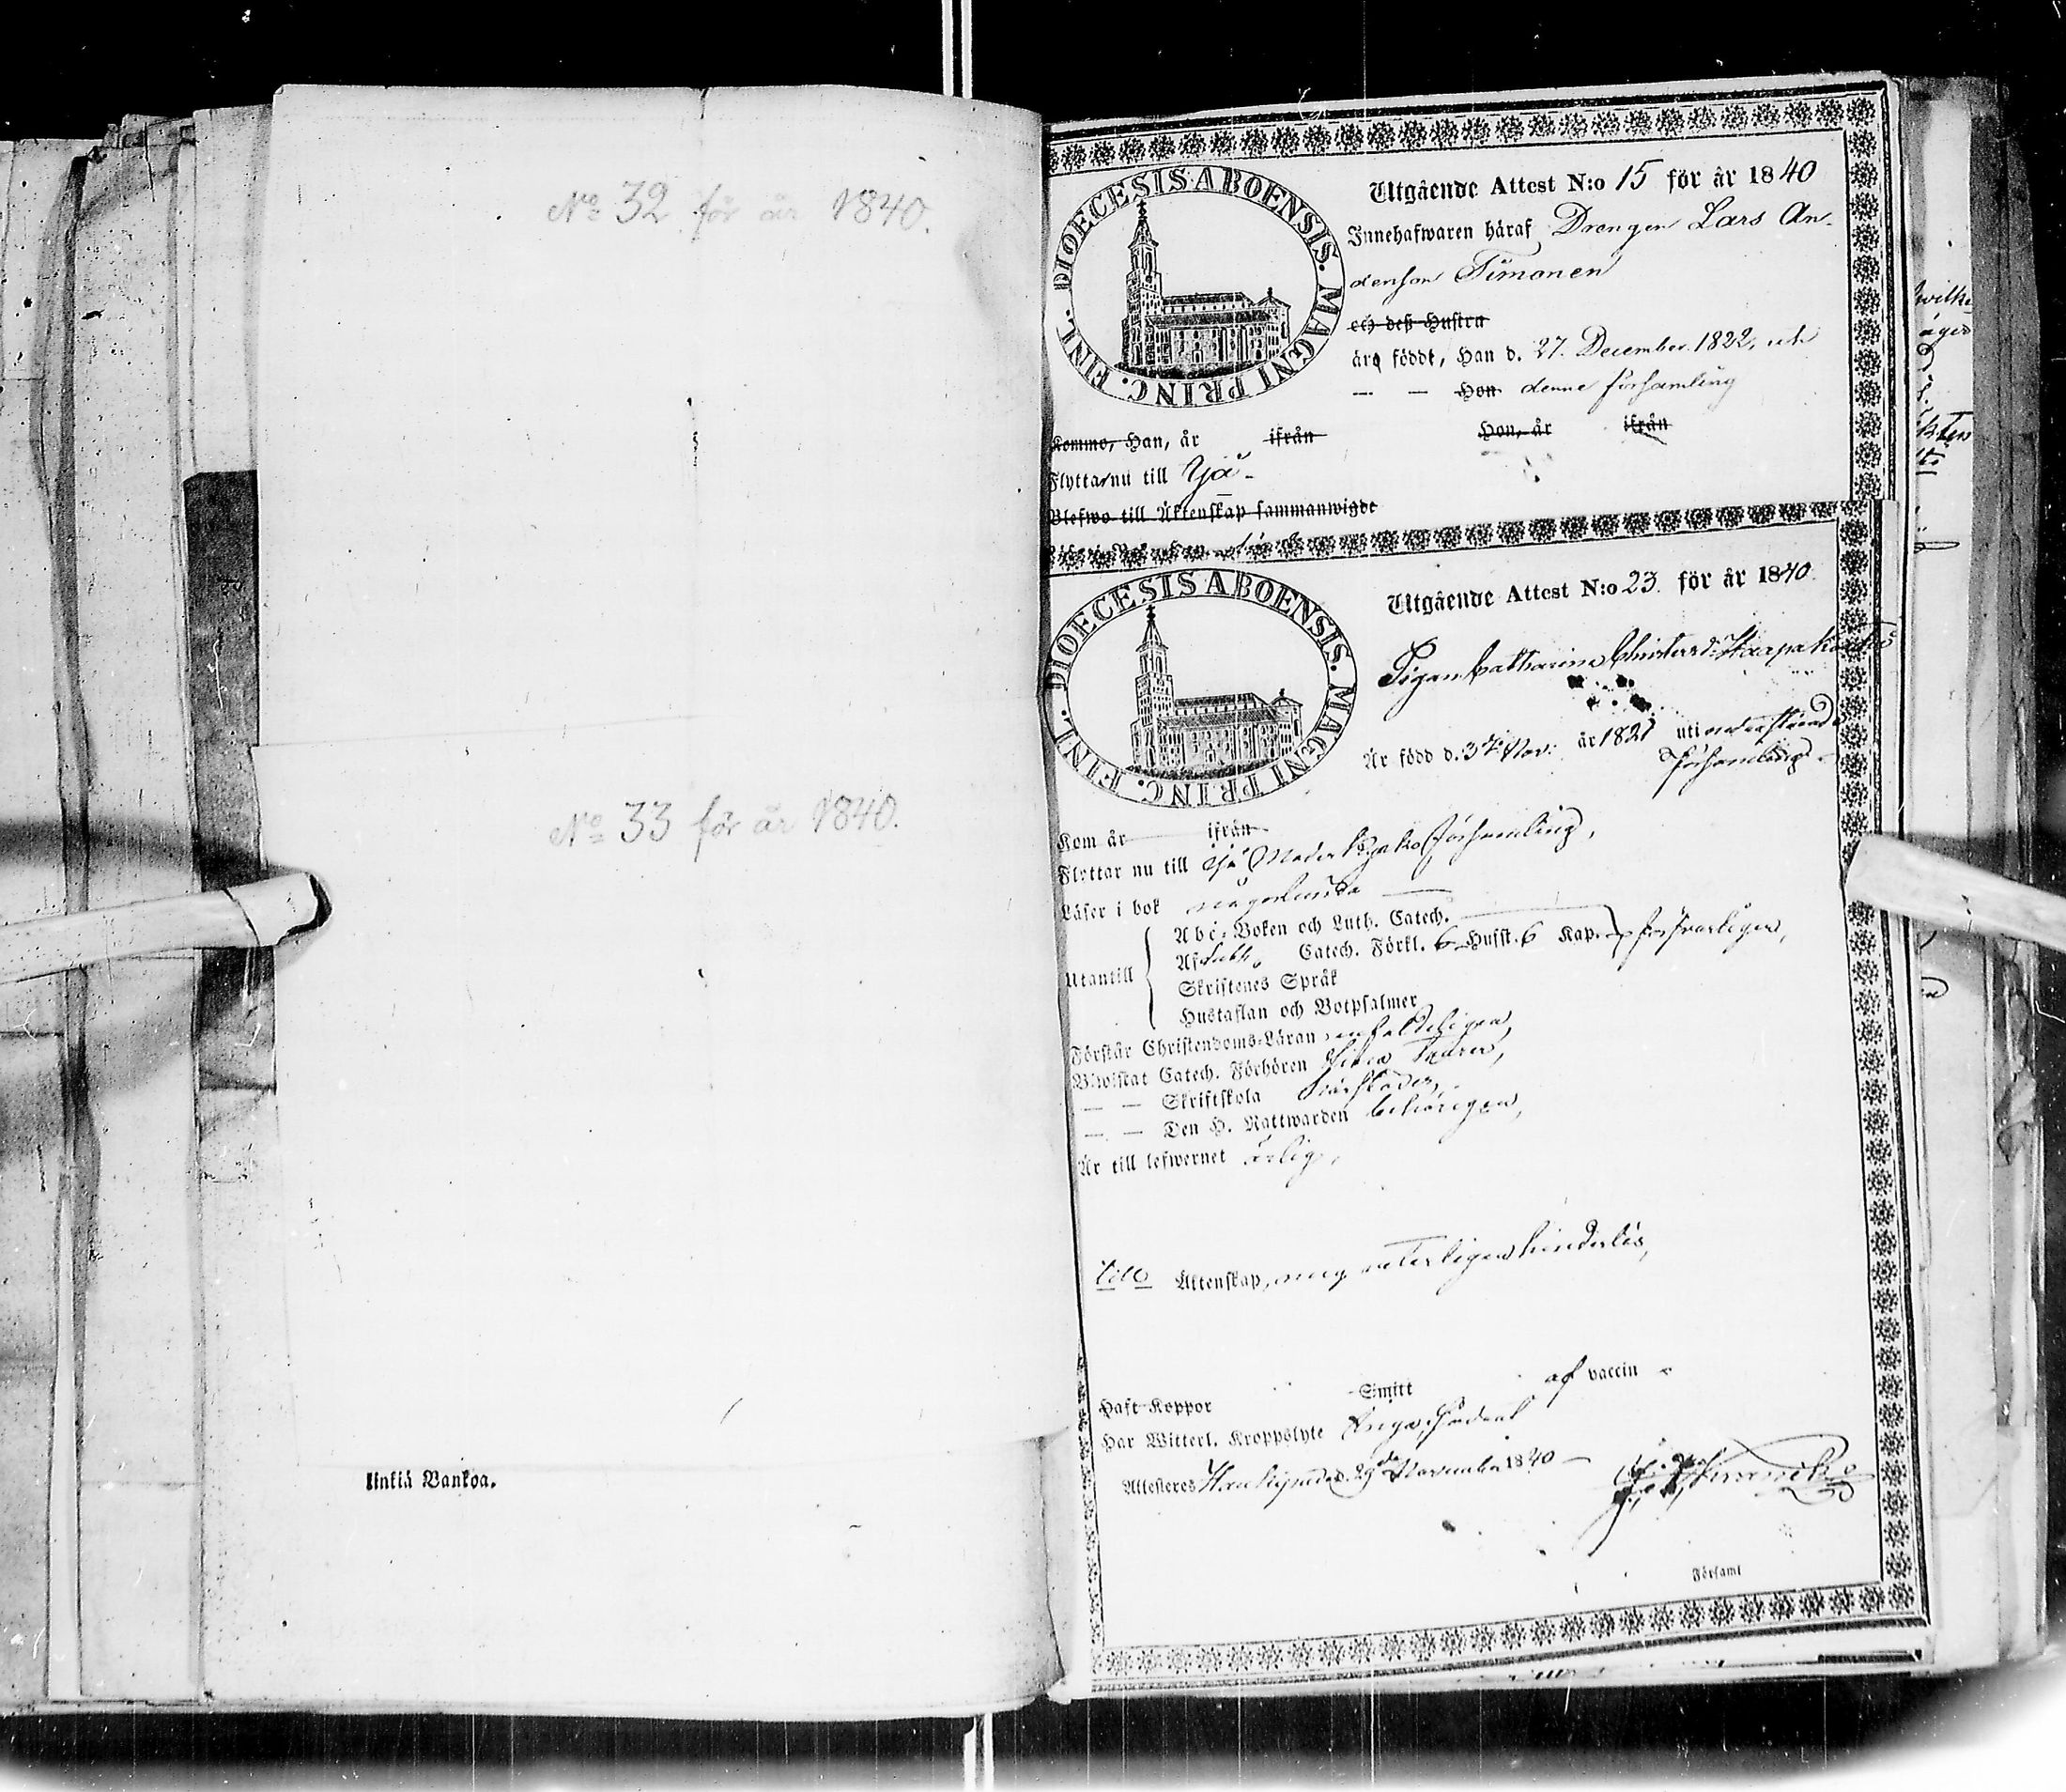 No 32 för år 1840.
No 33 för år 1840.
linkiä Bankoa.
DIOECESIS ABOENSIS. MAGNI PRINC. FINL.
Utgående Attest N:o 15 för år 1840
Innehafwaren häraf Drengen Lars An-
dersson Timonen
och deß Hustru
äro föddt, Han d. 27. December 1822, uti
— — Hon denna församling
Kommo, Han, år ifrån Hon, år ifrån
Flyttar nu till Ijä-
Blefwo till Äktenskap sammanwigde
DIOECESIS ABOENSIS. MAGNI PRINC. FINL.
Utgående Attest N:o 23. för år 1840.
Pigan Catharina Christersd:
Är född d. 3die Nov: år 1821 uti
församling
Kom år ifrån
Flyttar nu till församling,
Läser i bok någorlunda
Utantill
Abc-Boken och Luth. Catech.
Catech. Förkl. 6 Husst. 6 Kap. försvarligen,
Skriftenes Språk
Hustaflan och Botpsalmer
Förstår Christendoms-Läran enfaldeligen,
Bewistat Catech. Förhören
— — Skriftskola
— — Den H. Nattwarden behörigen,
Är till lefwernet ärlig,
Till Äktenskap, mig veterligen hinderlös,
Haft Koppor Smitt af vaccin
Har Witterl. Kroppslyte Inga
Attesteras d. 29de November 1840
Församl